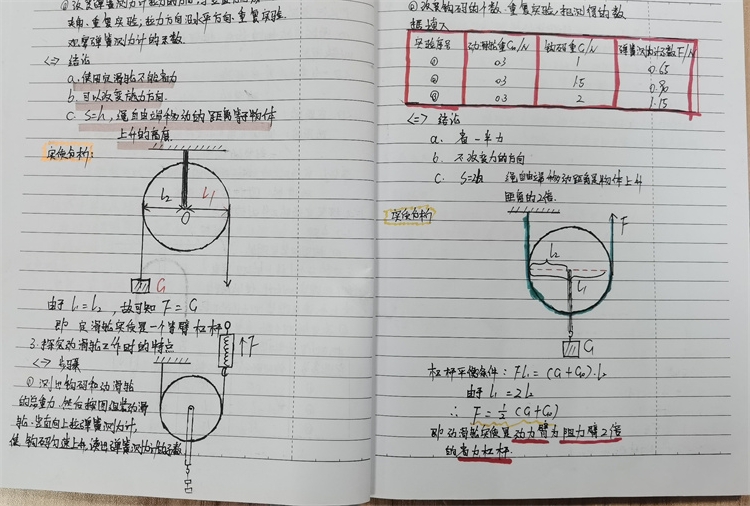 重复实验,拉力方向沿水平方向,重复实验.
观察弹簧测力计的示数
<二> 结论
a. 使用定滑轮不能省力
b. 可以改变施力方向.
c. S=h, 绳自由端移动的距离等于物体
上升的高度
实质分析:
l₂
l₁
O
G
由于 l₁=l₂, 故可知 F=G
即 定滑轮实质是一个等臂杠杆
3. 探究动滑轮工作时的特点
<一> 步骤
F
① 测出钩码和动滑轮
的总重力. 然后按图组装动滑
轮. 竖直向上拉弹簧测力计,
使钩码匀速上升, 读出弹簧测力计的示数
② 改变钩码的个数. 重复实验, 把测得的数
据填入
实验序号 动滑轮重G₀/N 钩码重G/N 弹簧测力计示数F/N
① 0.3 1 0.65
② 0.3 1.5 0.90
③ 0.3 2 1.15
<二> 结论
a. 省一半力
b. 不改变力的方向
c. S=2h 绳自由端移动距离是物体上升
距离的2倍.
实质分析
F
l₂
l₁
G
杠杆平衡条件: Fl₁=(G+G₀)·l₂
由于 l₁=2l₂
∴ F=½(G+G₀)
即动滑轮实质是动力臂为阻力臂2倍
的省力杠杆.